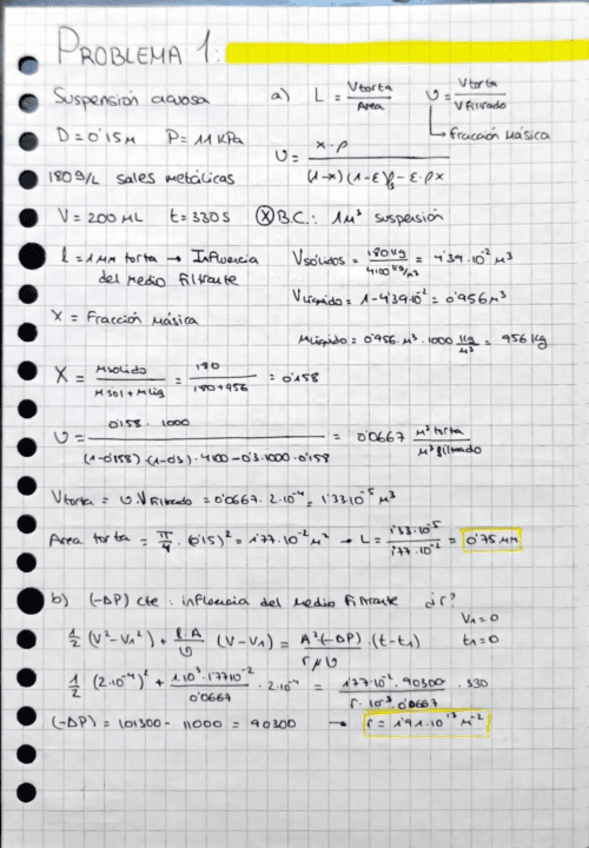 PROBLEMA 1:
Suspensión acuosa
a) L = Vtorta / Área    υ = Vtorta / V filtrado
fracción másica
D = 0'15 m    P = 11 kPa
υ = x·ρ / (1-x)(1-ε)ρs - ε·ρx
180 g/L sales metálicas
V = 200 mL    t = 330 s    (X) B.C.: 1 m³ suspensión
l = 1 mm torta → Influencia del medio filtrante
Vsólidos = 180 kg / 4100 kg/m³ = 4'39·10⁻² m³
Vlíquido = 1 - 4'39·10⁻² = 0'956 m³
X = Fracción másica
mlíquido = 0'956 m³ · 1000 kg/m³ = 956 kg
X = msólido / msol + mliq = 180 / 180+956 = 0'158
υ = 0'158 · 1000 / (1-0'158)·(1-0'3)·4100 - 0'3·1000·0'158 = 0'0667 m³ torta / m³ filtrado
Vtorta = υ·Vfiltrado = 0'0667 · 2·10⁻⁴ = 1'33·10⁻⁵ m³
Área torta = π/4 · (0'15)² = 1'77·10⁻² m² → L = 1'33·10⁻⁵ / 1'77·10⁻² = 0'75 mm
b) (-ΔP) cte : influencia del medio filtrante ¿r?
V₁ = 0
t₁ = 0
1/2 (V² - V₁²) + l·A/υ (V - V₁) = A²(-ΔP) / rμυ · (t - t₁)
1/2 (2·10⁻⁴)² + 1·10⁻³·1'77·10⁻² / 0'0667 · 2·10⁻⁴ = 1'77·10⁻² · 90300 / r·10⁻³·0'0667 · 330
(-ΔP) = 101300 - 11000 = 90300 → r = 1'91·10¹³ m⁻²